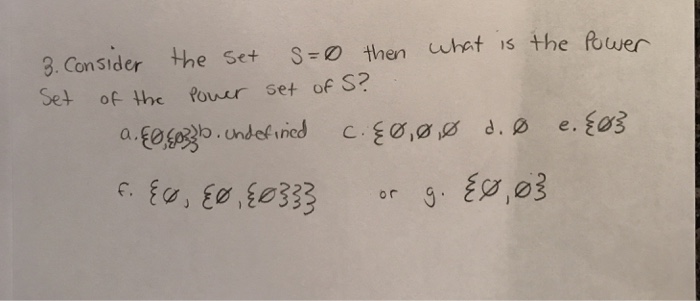 3. Consider the set S=∅ then what is the Power
Set of the Power set of S?
a. {∅,{∅}} b. undefined c. {∅,∅,∅ d. ∅ e. {∅}
f. {∅, {∅,{∅}}} or g. {∅,∅}